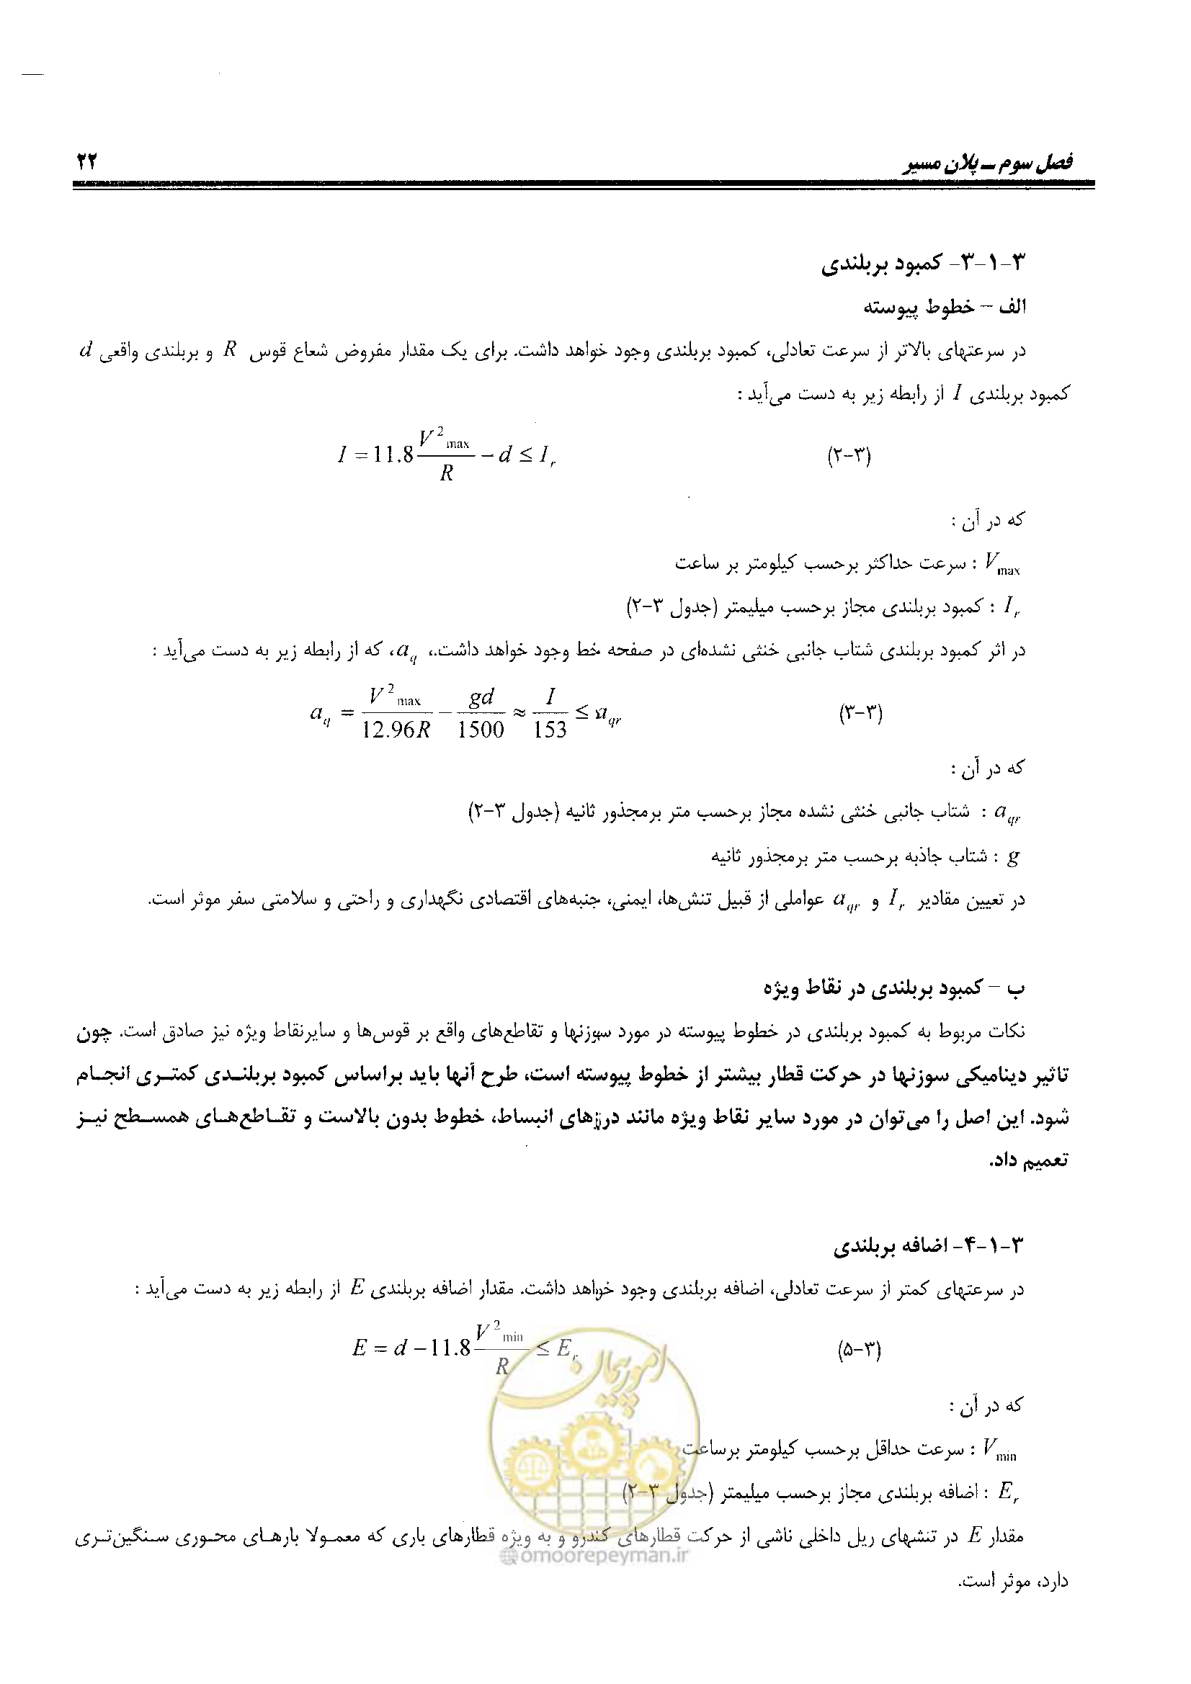 فصل سوم ــ پلان مسیر ۲۲
۳-۱-۳- کمبود بربلندی
الف – خطوط پیوسته
در سرعتهای بالاتر از سرعت تعادلی، کمبود بربلندی وجود خواهد داشت. برای یک مقدار مفروض شعاع قوس R و بربلندی واقعی d
کمبود بربلندی I از رابطه زیر به دست می‌آید :
I = 11.8 V²max / R − d ≤ I_r (۳-۲)
که در آن :
V_max : سرعت حداکثر برحسب کیلومتر بر ساعت
I_r : کمبود بربلندی مجاز برحسب میلیمتر (جدول ۳-۲)
در اثر کمبود بربلندی شتاب جانبی خنثی نشده‌ای در صفحه خط وجود خواهد داشت.، a_q، که از رابطه زیر به دست می‌آید :
a_q = V²max / 12.96R − gd / 1500 ≈ I / 153 ≤ a_qr (۳-۳)
که در آن :
a_qr : شتاب جانبی خنثی نشده مجاز برحسب متر برمجذور ثانیه (جدول ۳-۲)
g : شتاب جاذبه برحسب متر برمجذور ثانیه
در تعیین مقادیر I_r و a_qr عواملی از قبیل تنش‌ها، ایمنی، جنبه‌های اقتصادی نگهداری و راحتی و سلامتی سفر موثر است.
ب – کمبود بربلندی در نقاط ویژه
نکات مربوط به کمبود بربلندی در خطوط پیوسته در مورد سوزنها و تقاطع‌های واقع بر قوس‌ها و سایرنقاط ویژه نیز صادق است. چون
تاثیر دینامیکی سوزنها در حرکت قطار بیشتر از خطوط پیوسته است، طرح آنها باید براساس کمبود بربلنـدی کمتـری انجـام
شود. این اصل را می‌توان در مورد سایر نقاط ویژه مانند درزهای انبساط، خطوط بدون بالاست و تقـاطع‌هـای همسـطح نیـز
تعمیم داد.
۳-۱-۴- اضافه بربلندی
در سرعتهای کمتر از سرعت تعادلی، اضافه بربلندی وجود خواهد داشت. مقدار اضافه بربلندی E از رابطه زیر به دست می‌آید :
E = d − 11.8 V²min / R ≤ E_r (۳-۵)
امور پیمان
که در آن :
V_min : سرعت حداقل برحسب کیلومتر برساعت
E_r : اضافه بربلندی مجاز برحسب میلیمتر (جدول ۳-۲)
مقدار E در تنشهای ریل داخلی ناشی از حرکت قطارهای کندرو و به ویژه قطارهای باری که معمـولا بارهـای محـوری سـنگین‌تـری
@omoorepeyman.ir
دارد، موثر است.